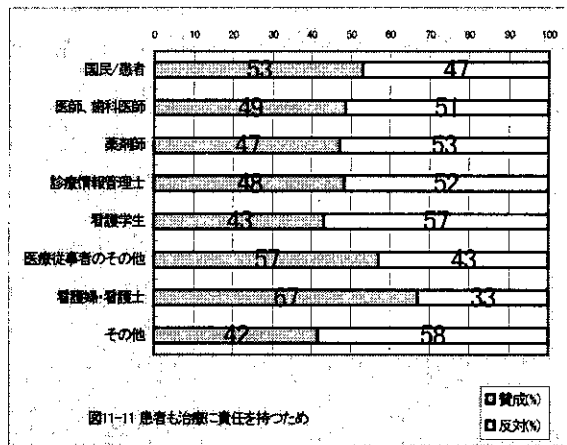 0 10 20 30 40 50 60 70 80 90 100
国民/患者 53 47
医師、歯科医師 49 51
薬剤師 47 53
診療情報管理士 48 52
看護学生 43 57
医療従事者のその他 57 43
看護婦・看護士 67 33
その他 42 58
図11-11 患者も治療に責任を持つため
賛成(%)
反対(%)